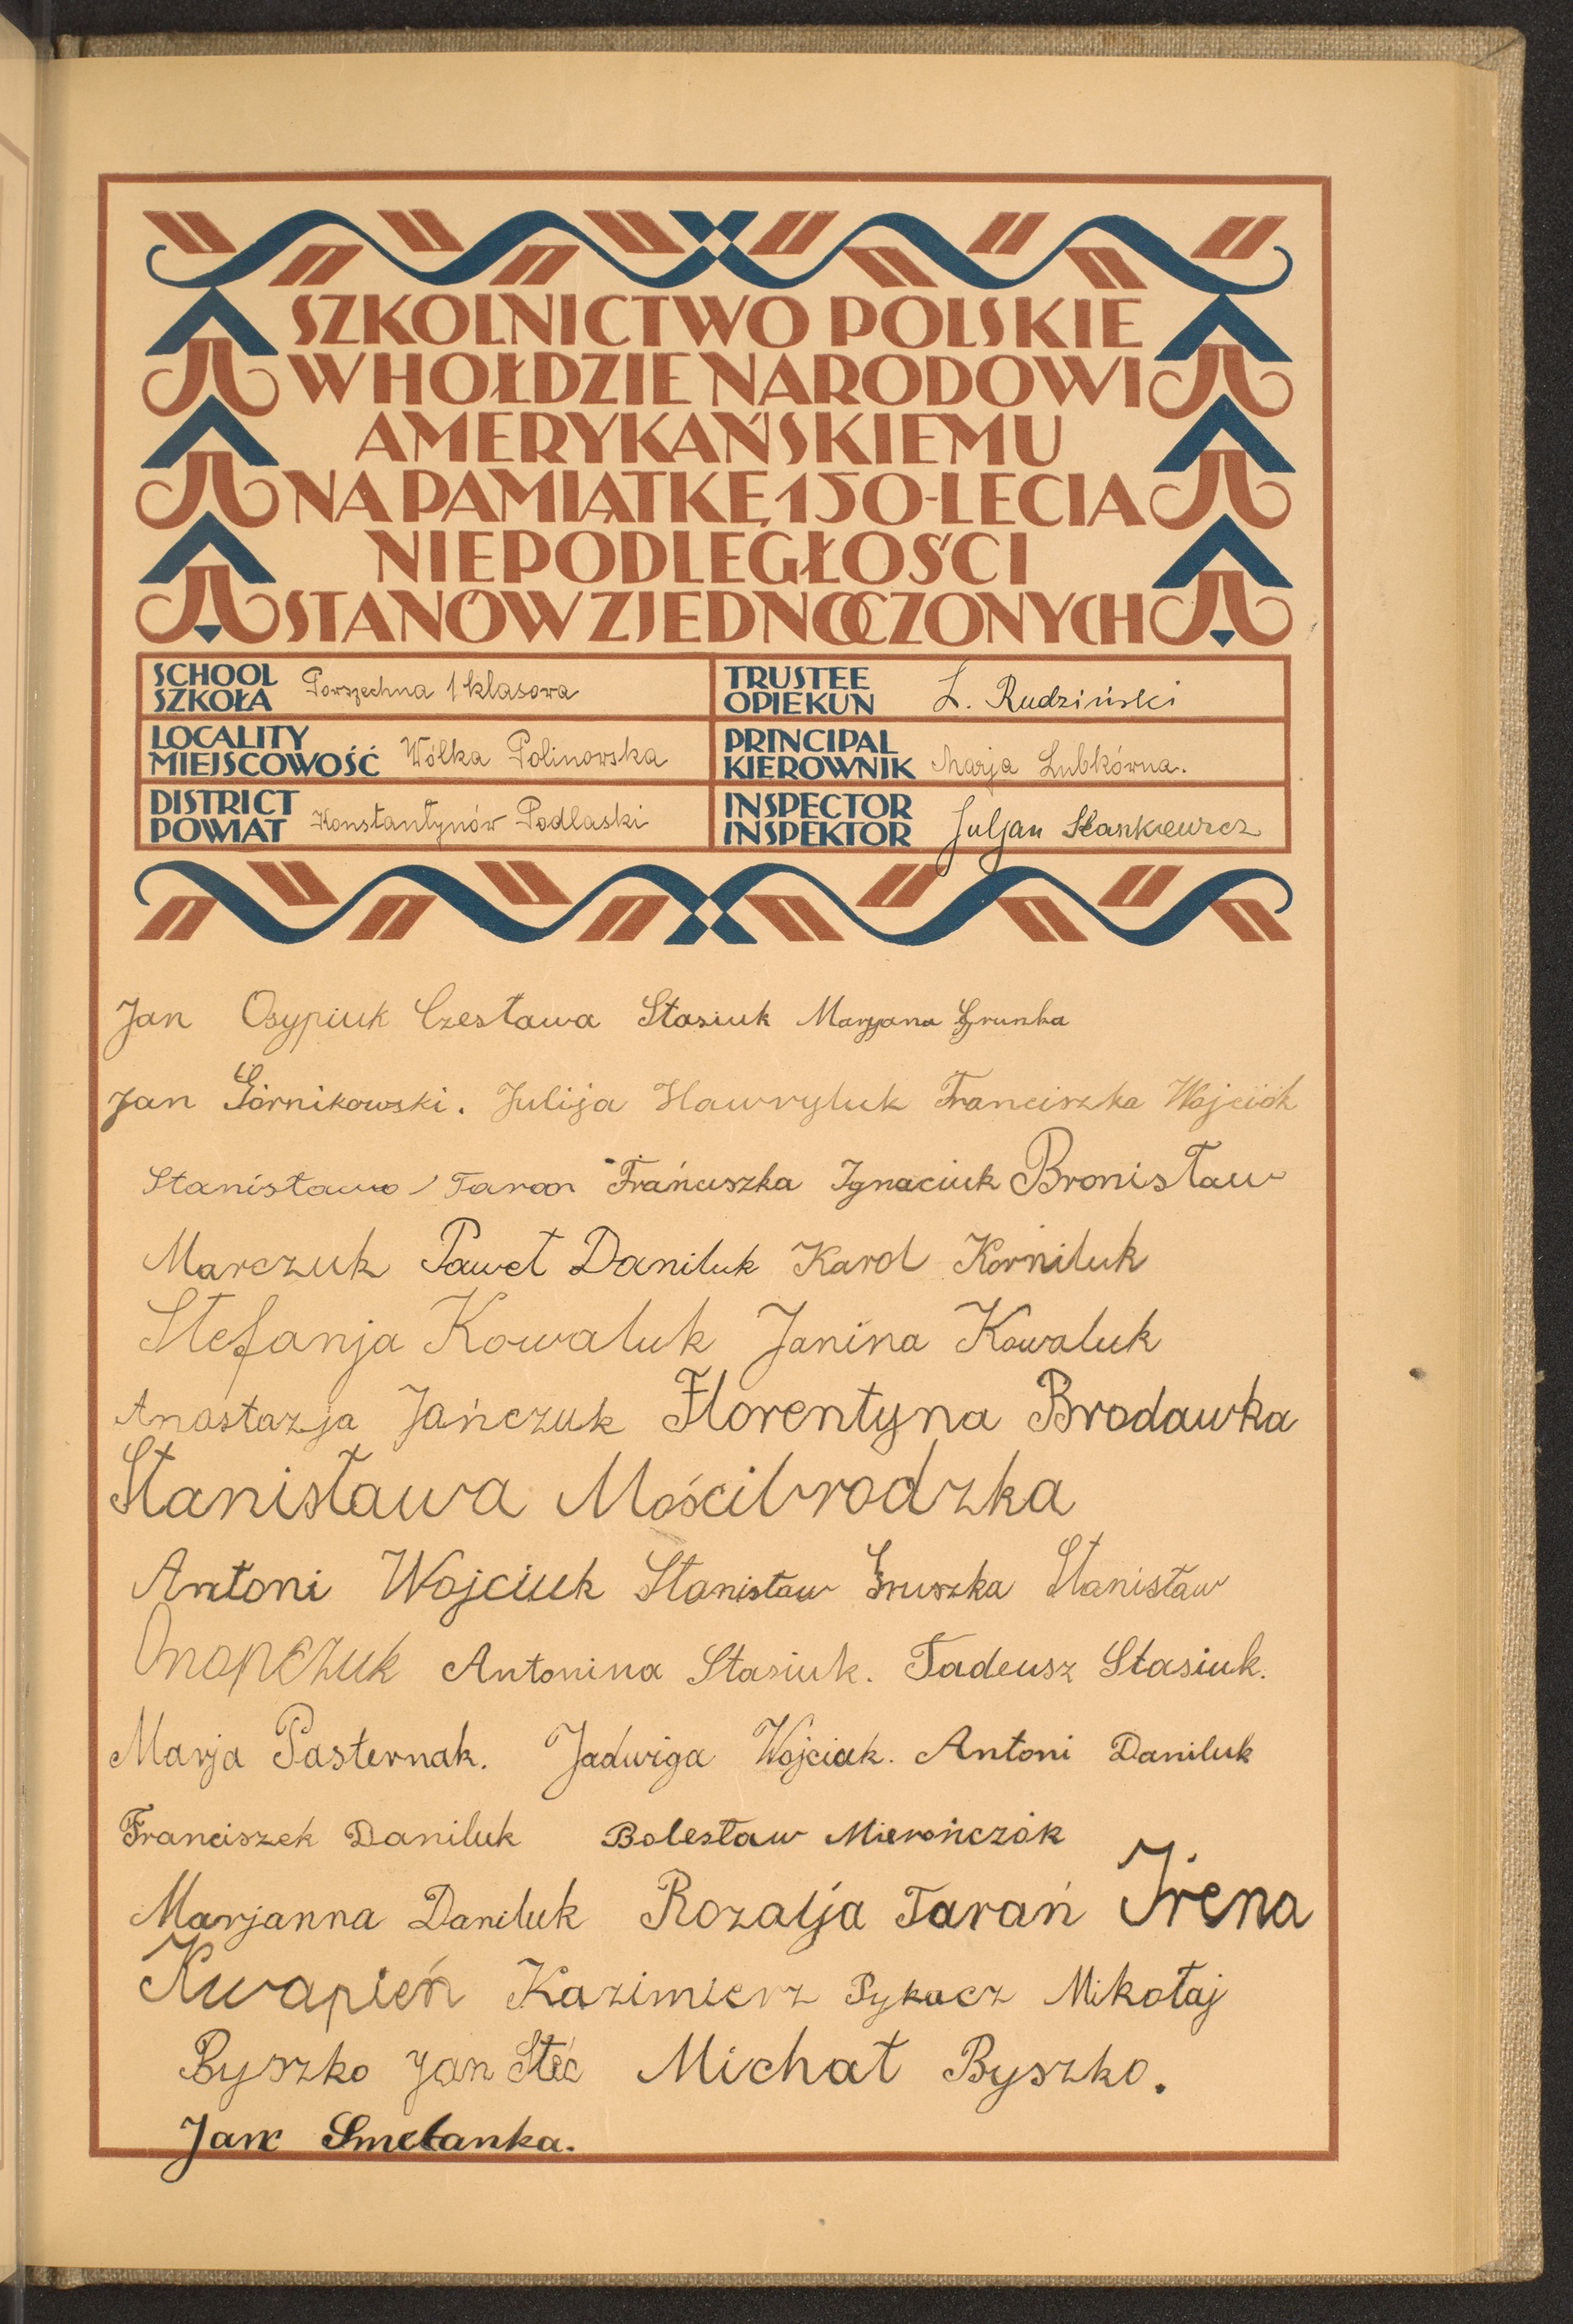 SZKOLNICTWO POLSKIE
W HOŁDZIE NARODOWI
AMERYKAŃSKIEMU
NA PAMIĄTKĘ 150-LECIA
NIEPODLEGŁOŚCI
STANÓW ZJEDNOCZONYCH
SCHOOL
SZKOŁA Powszechna 1 klasowa
TRUSTEE
OPIEKUN L. Rudziński
LOCALITY
MIEJSCOWOŚĆ Wólka Polinowska
PRINCIPAL
KIEROWNIK Marja Lubkówna.
DISTRICT
POWIAT Konstantynów Podlaski
INSPECTOR
INSPEKTOR Juljan Stankiewicz
Jan Osypiuk Czesława Stasiuk Maryjana
Jan Górnikowski. Julija Hawryluk Franciszka Wojciók
Stanisława Taran Frańciszka Ignaciuk Bronisław
Marczuk Paweł Daniluk Karol Korniluk
Stefanja Kowaluk Janina Kowaluk
Anastazja Jańczuk Florentyna Brodawka
Stanisława Mościbrodzka
Antoni Wojciuk Stanisław Gruszka Stanisław
Onopczuk Antonina Stasiuk. Tadeusz Stasiuk.
Marja Pasternak. Jadwiga Wojciak. Antoni Daniluk
Franciszek Daniluk Bolesław Mierończók
Marjanna Daniluk Rozalja Tarań Irena
Kwapień Kazimierz Pykacz Mikołaj
Byszko Jan Steć Michał Byszko.
Jan Smelanka.